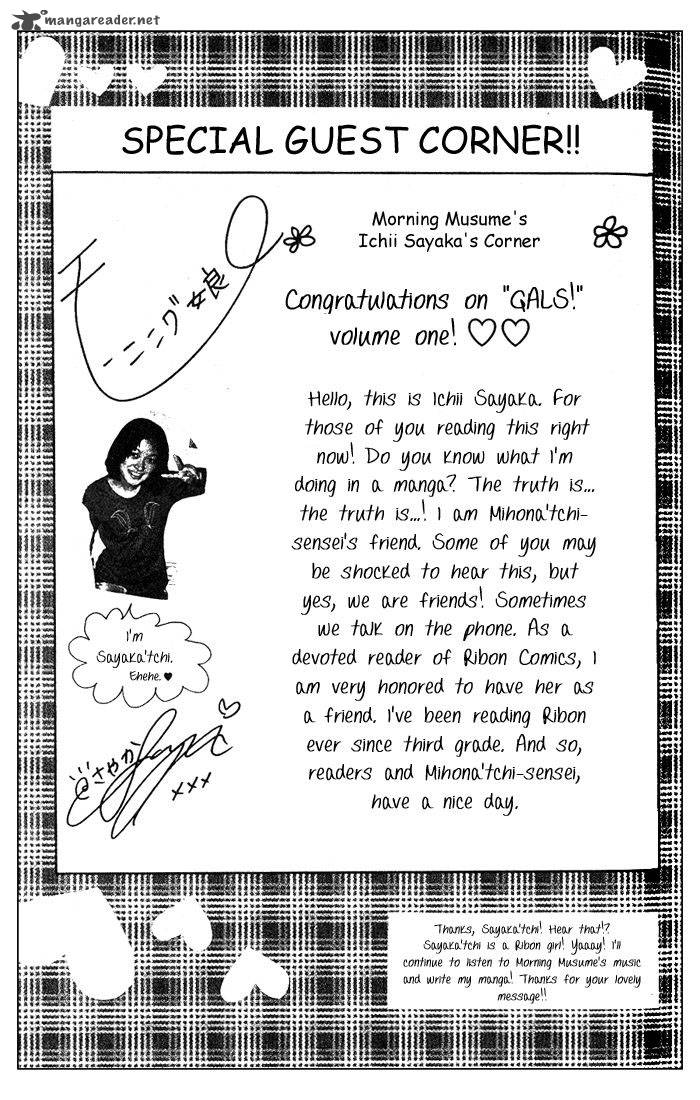 mangareader.net
SPECIAL GUEST CORNER!!
Morning Musume's
Ichii Sayaka's Corner
モーニング娘
Congratulations on "GALS!"
volume one! ♡♡
Hello, this is Ichii Sayaka. For
those of you reading this right
now! Do you know what I'm
doing in a manga? The truth is...
the truth is...! I am Mihona'tchi-
sensei's friend. Some of you may
be shocked to hear this, but
yes, we are friends! Sometimes
we talk on the phone. As a
devoted reader of Ribon Comics, I
am very honored to have her as
a friend. I've been reading Ribon
ever since third grade. And so,
readers and Mihona'tchi-sensei,
have a nice day.
I'm
Sayaka'tchi.
Ehehe.♥
@さやか
xxx
Thanks, Sayaka'tchi! Hear that!?
Sayaka'tchi is a Ribon girl! Yaaay! I'll
continue to listen to Morning Musume's music
and write my manga! Thanks for your lovely
message!!